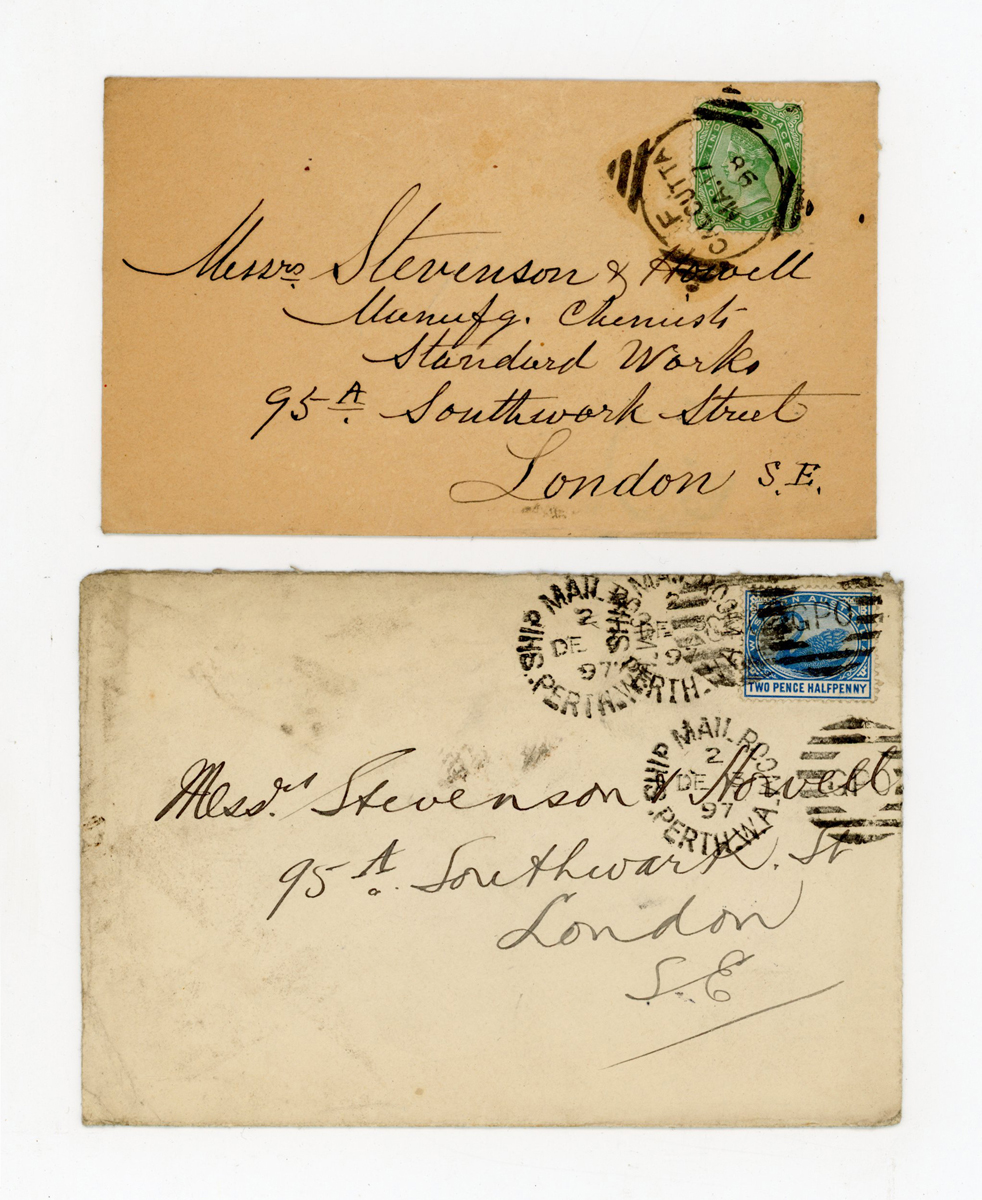 CALCUTTA
MA. 7
98
POSTAGE
Messrs. Stevenson & Howell
Manufg. Chemists
Standard Works
95 A. Southwark Street
London S.E.
SHIP MAIL
2
DE
97
PERTH.W.A.
SHIP MAIL ROOM
2
97
PERTH.W.A.
WESTERN AUSTRALIA
GPO
TWO PENCE HALFPENNY
SHIP MAIL ROOM
2
DE
97
PERTH.W.A.
GPO
Messrs Stevenson & Howell
95 A. Southwark. St
London
S.E